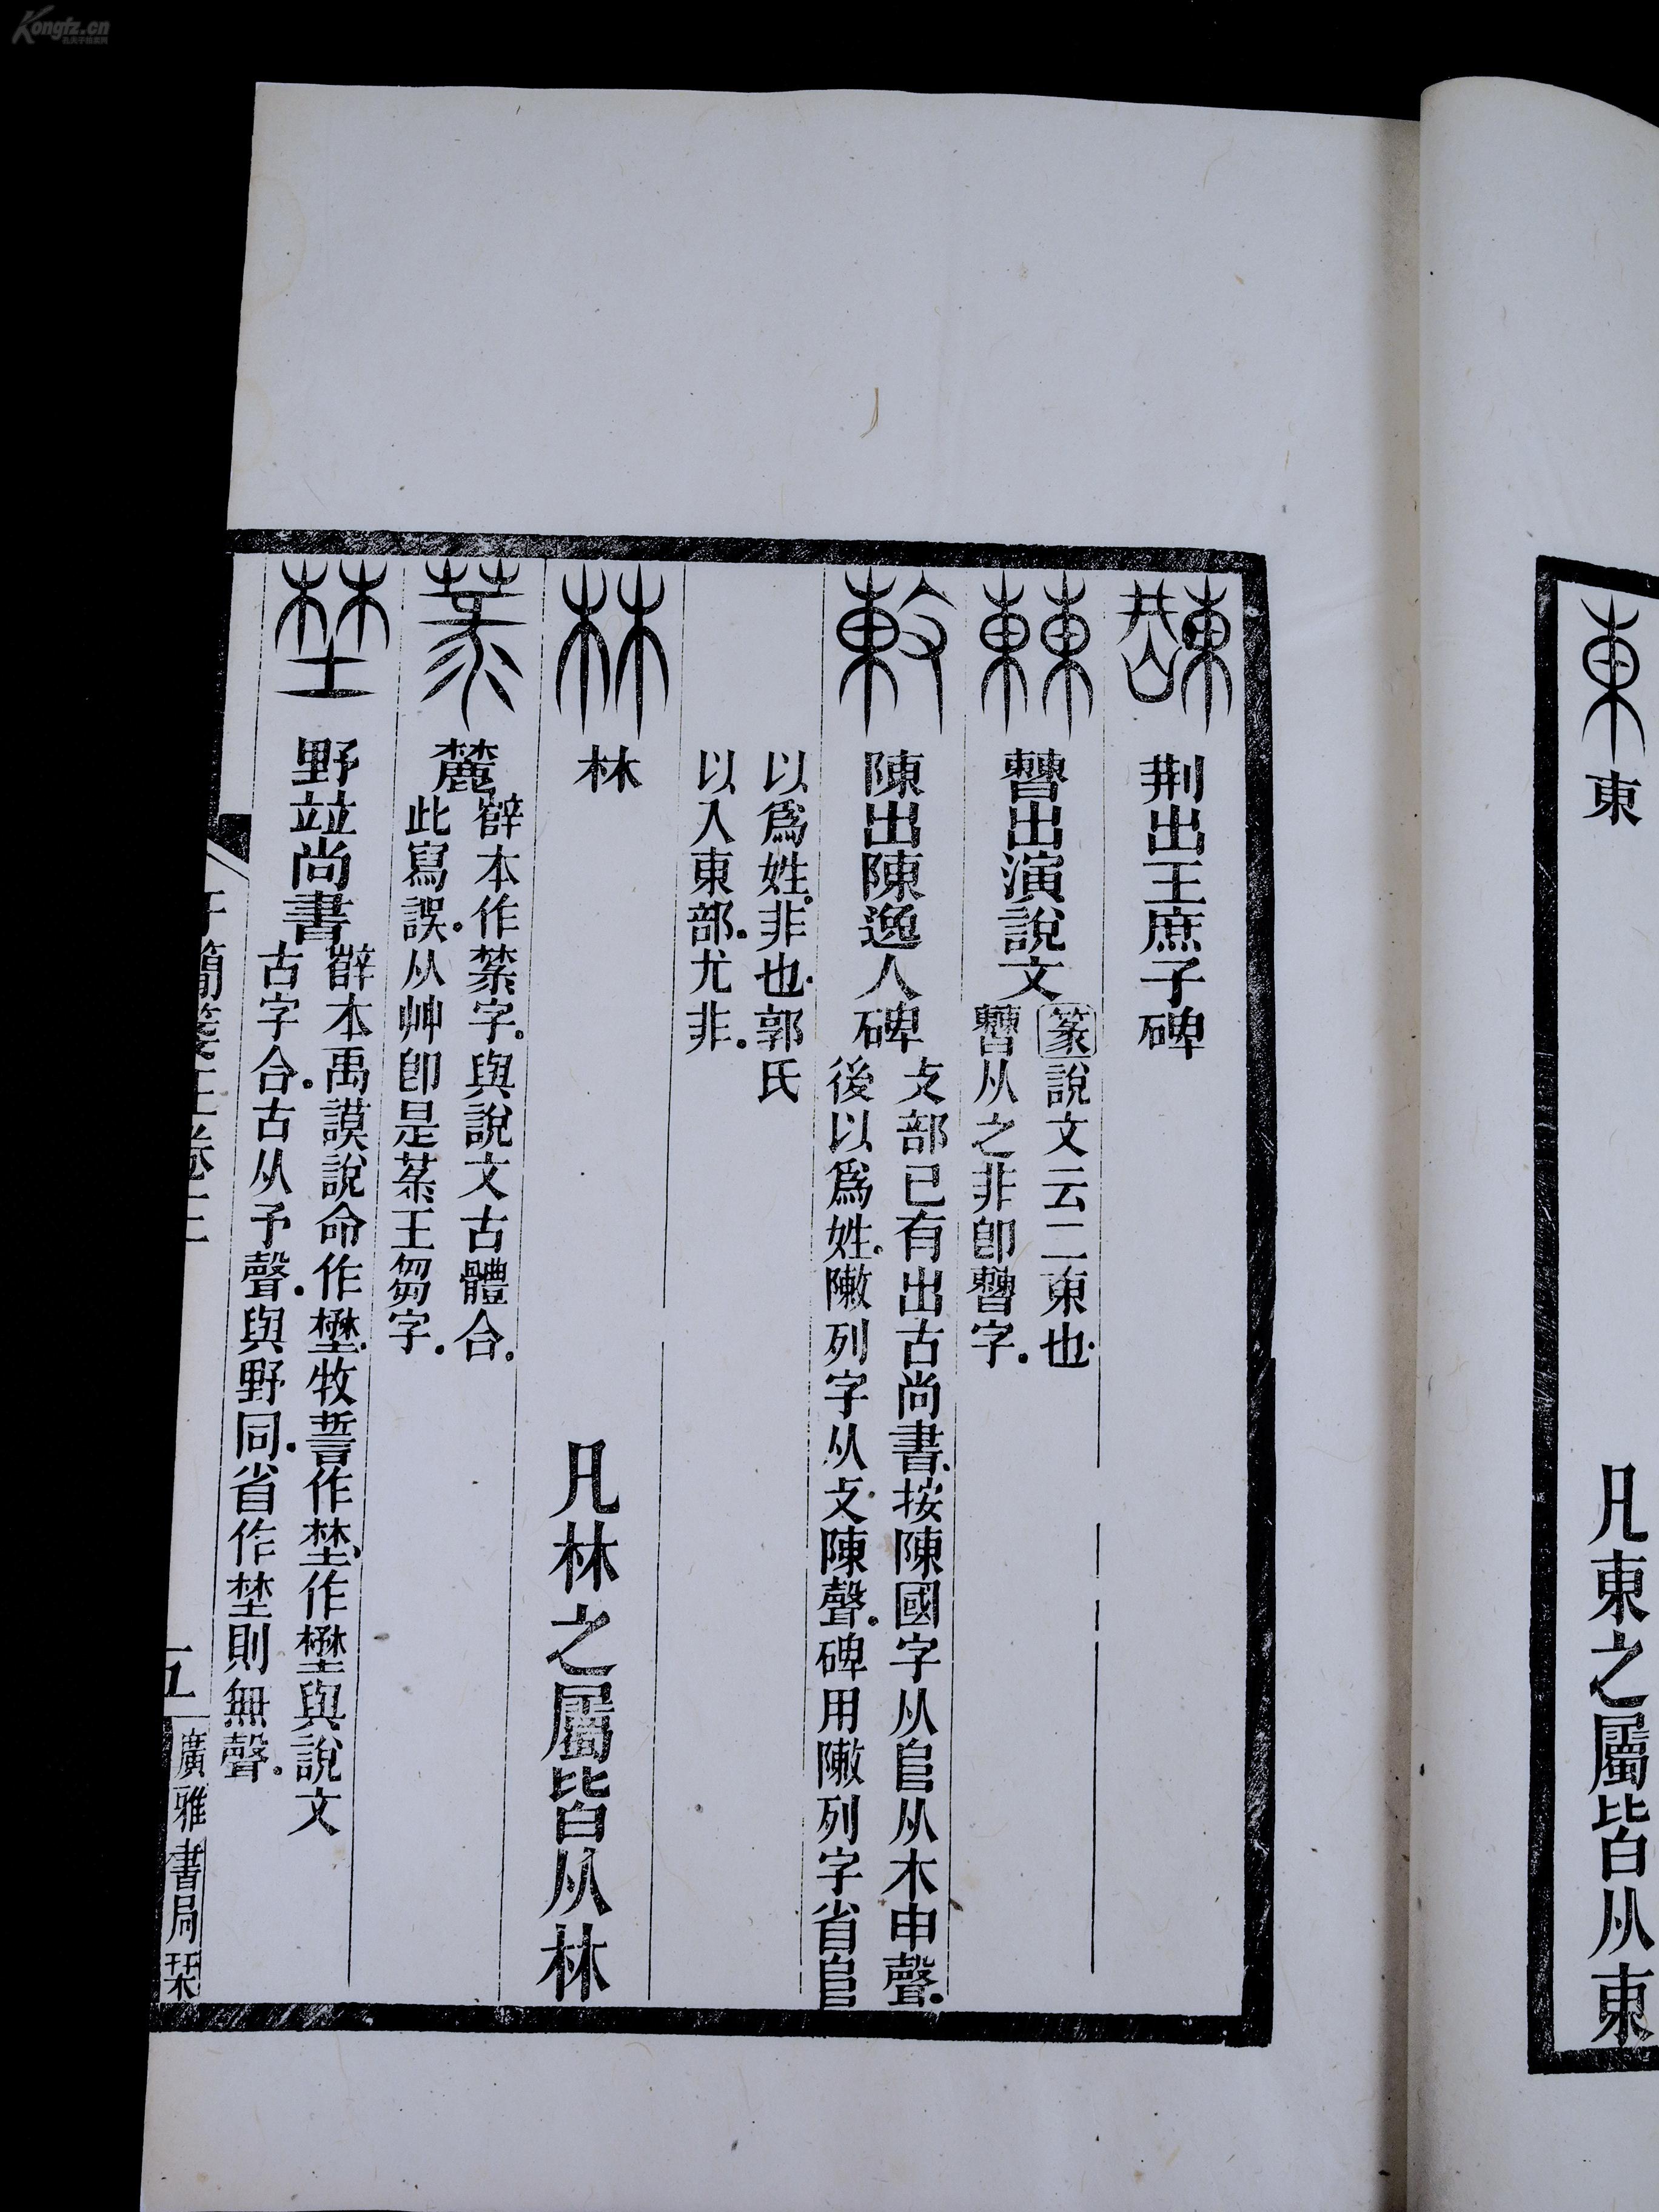 Kongfz.cn
東
凡東之屬皆从東
荆出王庶子碑
㯥出演說文
篆說文云二東也
㯥从之非卽㯥字
陳出陳逸人碑
攴部已有出古尚書按陳國字从𨸏从木申聲
後以爲姓敶列字从攴陳聲碑用敶列字省𨸏
以爲姓非也郭氏
以入東部尤非
林
凡林之屬皆从林
麓
薜本作菉字與說文古體合
此寫誤从艸卽是菉王芻字
野竝尚書
薜本禹謨說命作壄牧誓作埜作壄與說文
古字合古从予聲與野同省作埜則無聲
簡箋正卷三
五
廣雅書局栞